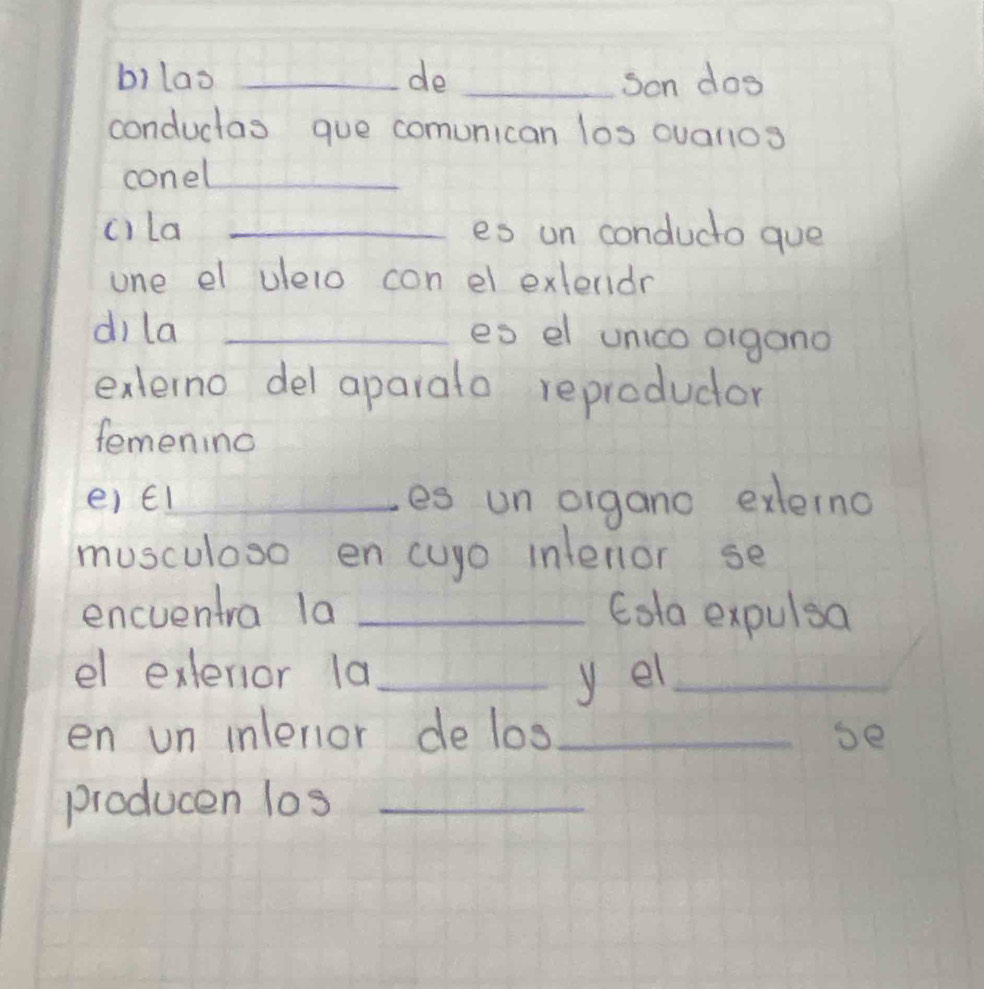 b) las ________ de ________ son dos
conductas que comunican los ovarios
con el ________
c) La ________ es un conducto que
une el utero con el exterior
d) la ________ es el unico organo
externo del aparato reproductor
femenino
e) El ________ es un organo externo
musculoso en cuyo interior se
encuentra la ________ Esta expulsa
el exterior la ________ y el ________
en un interior de los ________ se
producen los ________